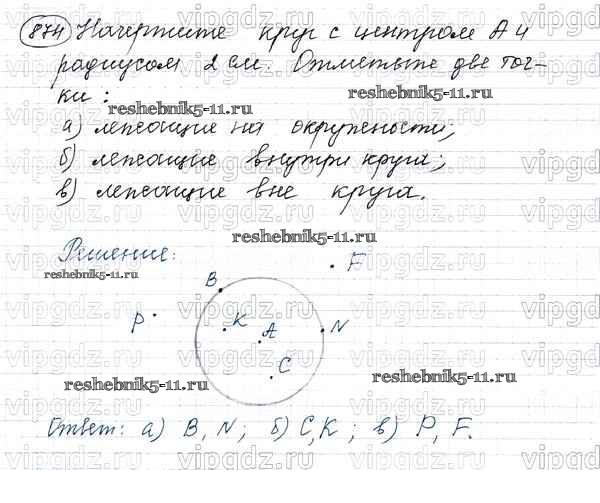 874 Начертите круг с центром А и
радиусом 2 см. Отметьте две точ-
ки:
reshebnik5-11.ru reshebnik5-11.ru
а) лежащие на окружности;
б) лежащие внутри круга;
в) лежащие вне круга.
reshebnik5-11.ru
Решение:
F
reshebnik5-11.ru
B
P K A N
C
reshebnik5-11.ru reshebnik5-11.ru
Ответ: а) B, N; б) C, K; в) P, F.
vipgdz.ru